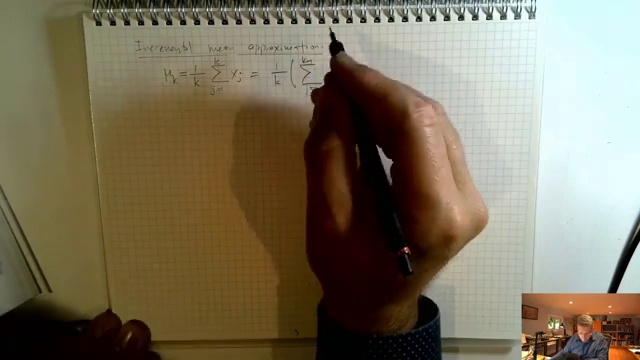 Incremental mean approximation:
μ_k = 1/k ∑_{j=1}^{k} x_j = 1/k ( ∑